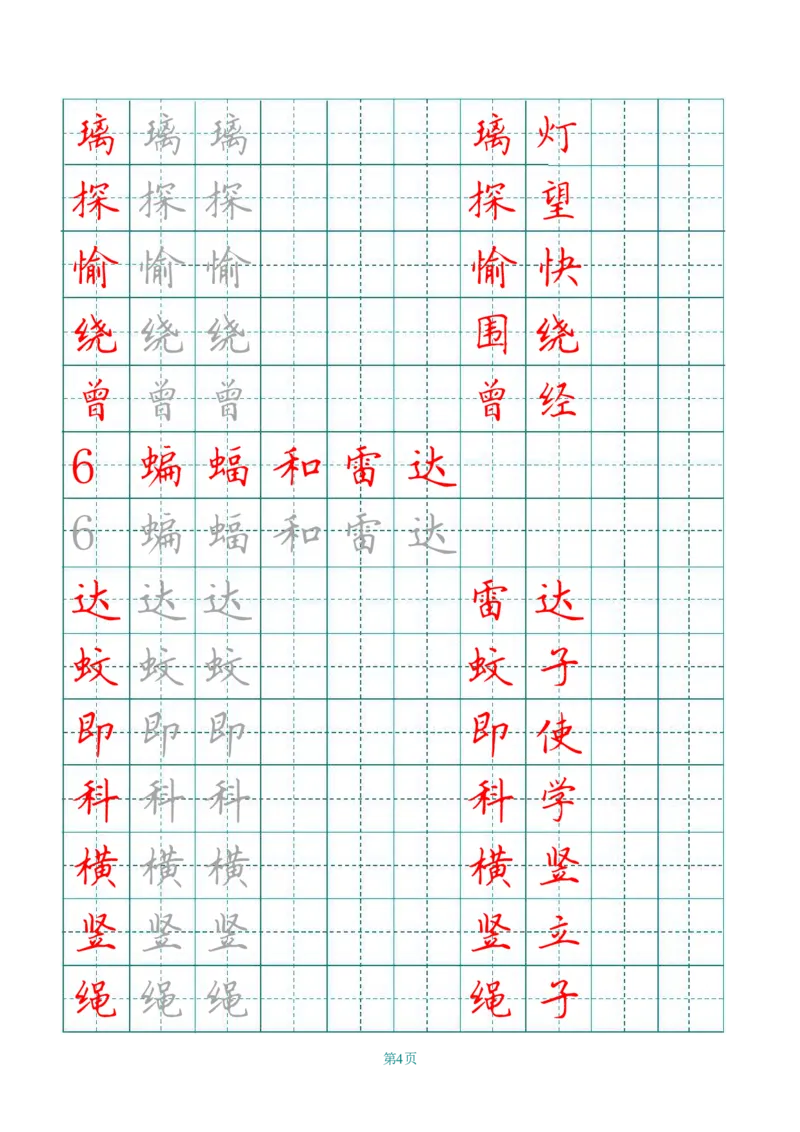 璃璃璃 璃灯
探探探 探望
愉愉愉 愉快
绕绕绕 围绕
曾曾曾 曾经
6 蝙蝠和雷达
6 蝙蝠和雷达
达达达 雷达
蚊蚊蚊 蚊子
即即即 即使
科科科 科学
横横横 横竖
竖竖竖 竖立
绳绳绳 绳子
第4页